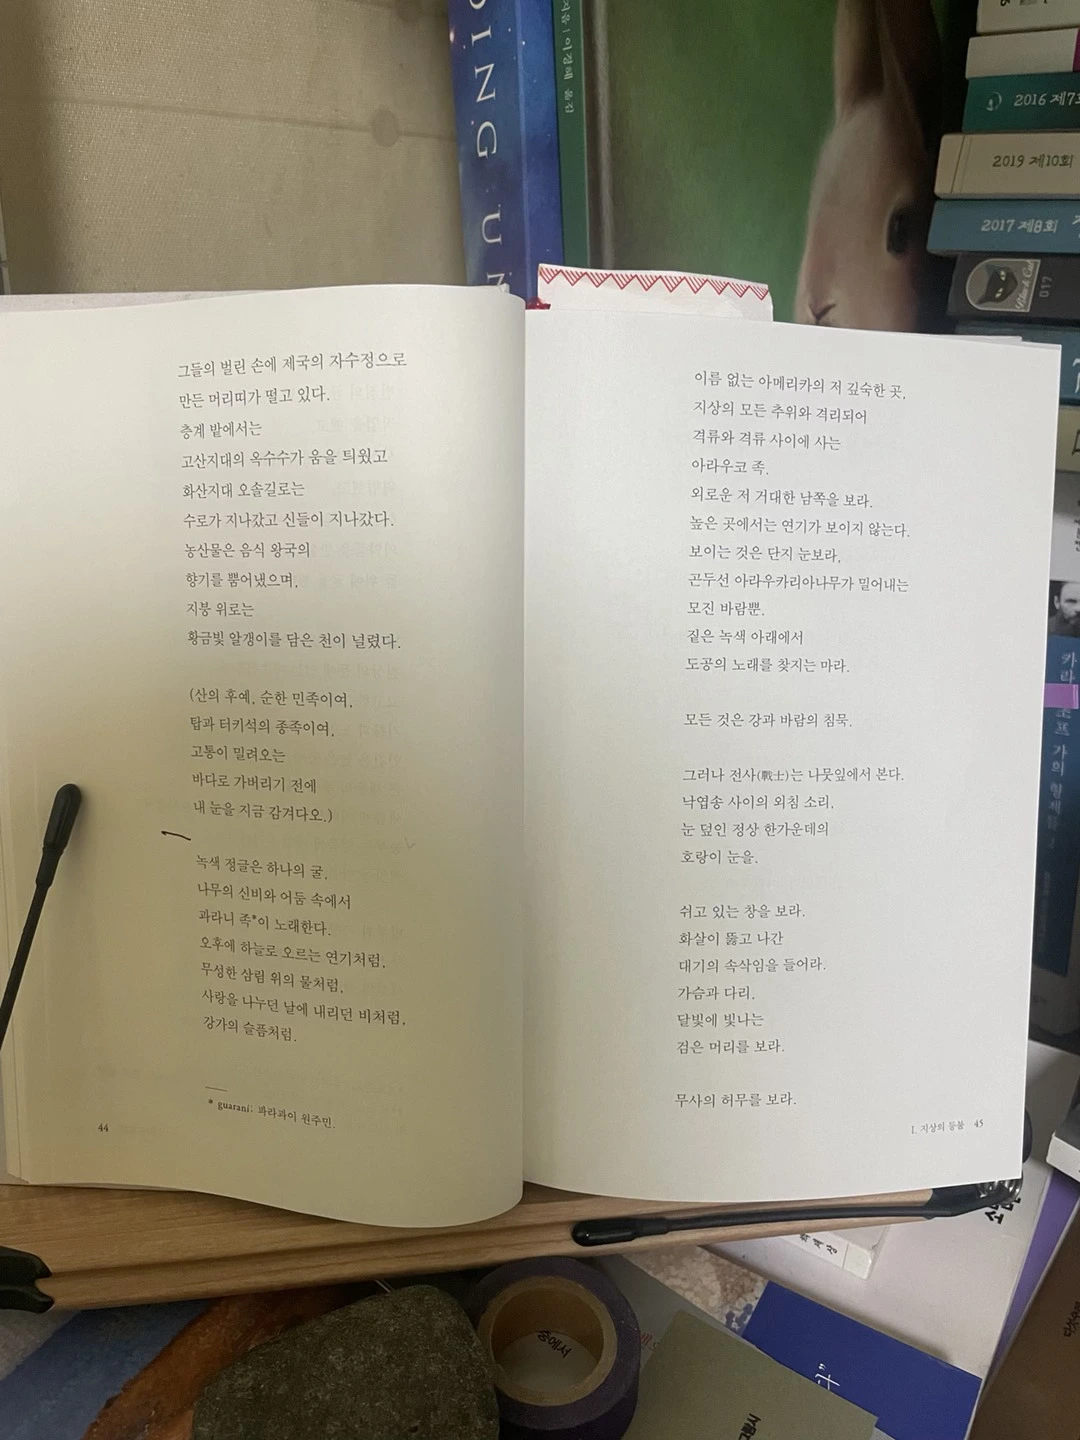 DING UN
이경혜 옮김
2016 제7회
2019 제10회
2017 제8회
Black Cat
017
그들의 벌린 손에 제국의 자수정으로
만든 머리띠가 떨고 있다.
층계 밭에서는
고산지대의 옥수수가 움을 틔웠고
화산지대 오솔길로는
수로가 지나갔고 신들이 지나갔다.
농산물은 음식 왕국의
향기를 뿜어냈으며,
지붕 위로는
황금빛 알갱이를 담은 천이 널렸다.
(산의 후예, 순한 민족이여,
탑과 터키석의 종족이여,
고통이 밀려오는
바다로 가버리기 전에
내 눈을 지금 감겨다오.)
녹색 정글은 하나의 굴,
나무의 신비와 어둠 속에서
과라니 족*이 노래한다.
오후에 하늘로 오르는 연기처럼,
무성한 삼림 위의 물처럼,
사랑을 나누던 날에 내리던 비처럼,
강가의 슬픔처럼.
* guaraní: 파라과이 원주민.
44
이름 없는 아메리카의 저 깊숙한 곳,
지상의 모든 추위와 격리되어
격류와 격류 사이에 사는
아라우코 족.
외로운 저 거대한 남쪽을 보라.
높은 곳에서는 연기가 보이지 않는다.
보이는 것은 단지 눈보라,
곤두선 아라우카리아나무가 밀어내는
모진 바람뿐.
짙은 녹색 아래에서
도공의 노래를 찾지는 마라.
모든 것은 강과 바람의 침묵.
그러나 전사(戰士)는 나뭇잎에서 본다.
낙엽송 사이의 외침 소리,
눈 덮인 정상 한가운데의
호랑이 눈을.
쉬고 있는 창을 보라.
화살이 뚫고 나간
대기의 속삭임을 들어라.
가슴과 다리,
달빛에 빛나는
검은 머리를 보라.
무사의 허무를 보라.
I. 지상의 등불 45
중에서